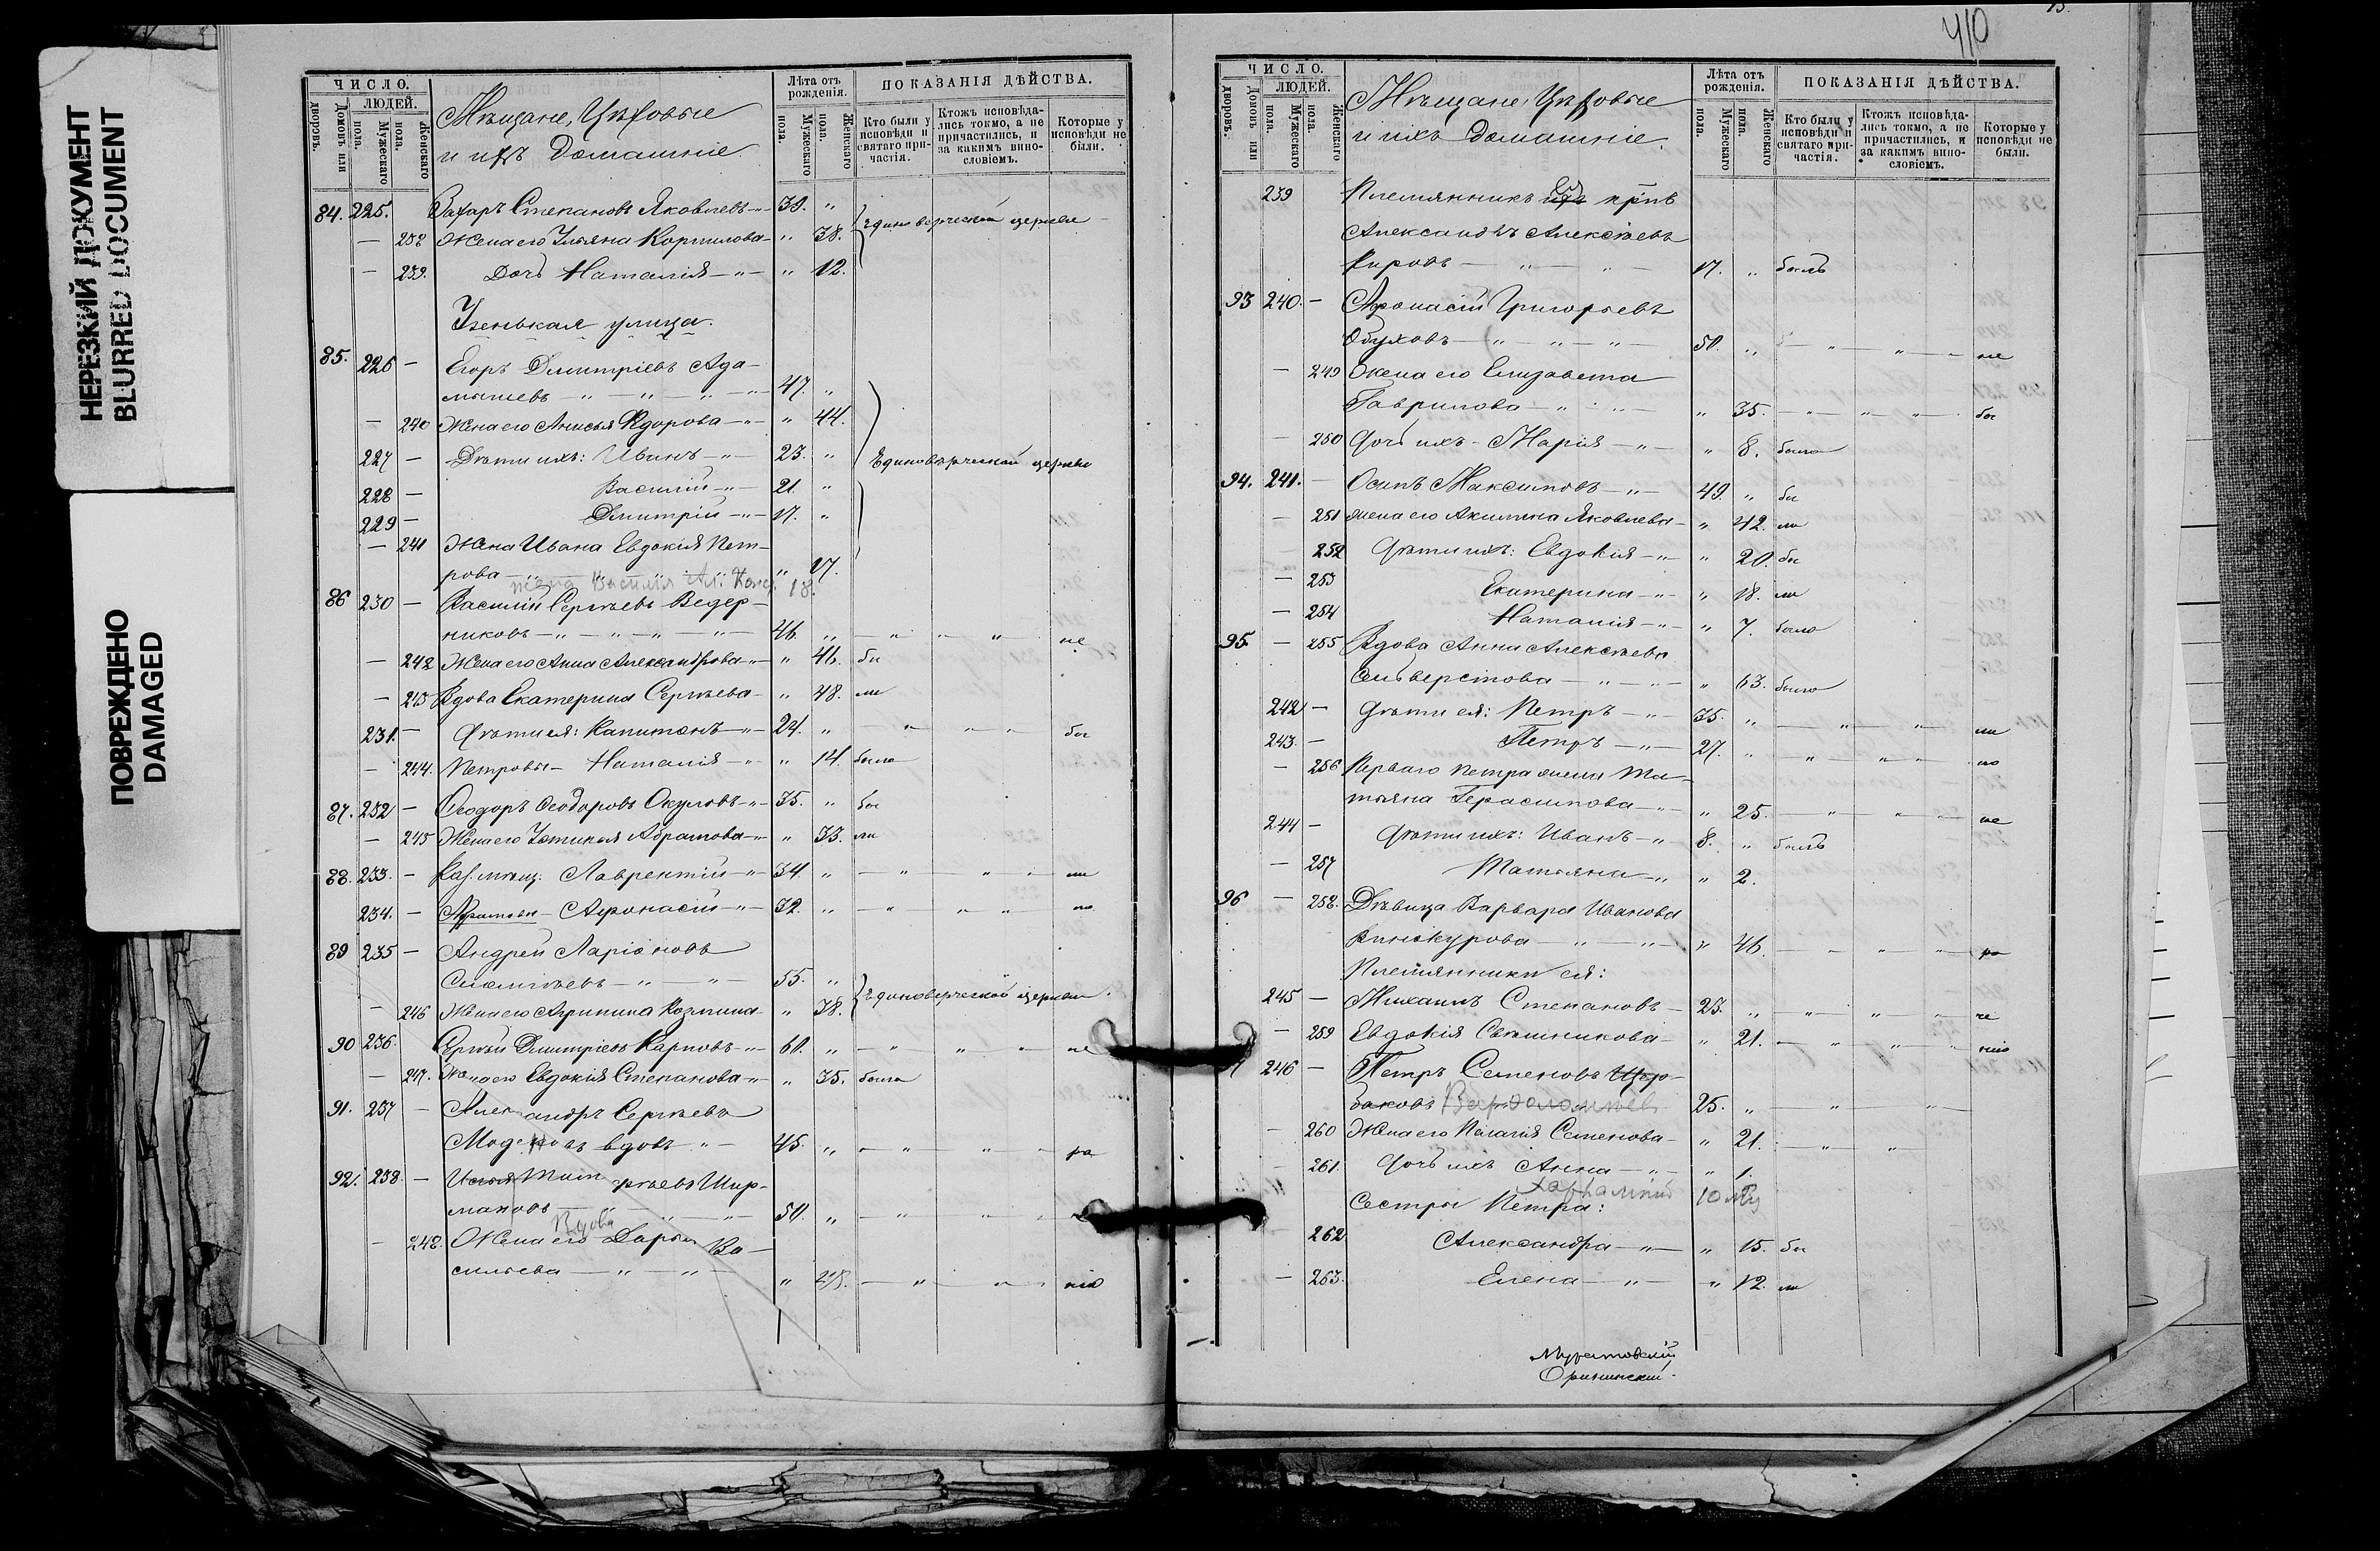 НЕРЕЗКИЙ ДОКУМЕНТ
BLURRED DOCUMENT
ПОВРЕЖДЕНО
DAMAGED
ЧИСЛО.
Домовъ или дворовъ.
ЛЮДЕЙ.
Мужескаго пола.
Женскаго пола.
Мѣщане, Цѣховые
и ихъ домашніе.
Лѣта отъ рожденія.
Мужескаго пола.
Женскаго пола.
ПОКАЗАНІЯ ДѢЙСТВА.
Кто были у исповѣди и святаго причастія.
Ктожъ исповѣдались токмо, а не причастились, и за какимъ винословіемъ.
Которые у исповѣди не были.
84. 225. Захаръ Степановъ Яковлевъ 39. "
— 238 Жена его Ульяна Корнилова " 38. Единоверческой церкви
— 239. Дочь Наталія " 12.
Узенькая улица.
85. 226 — Егоръ Димитріевъ Ада-
мышевъ 47. "
— 240 Жена его Анисья Ѳедорова " 44.
227 — Дѣти ихъ: Иванъ 23. " Единовѣрческой церкви
228 — Василій 21. "
229 — Димитрій 17. "
— 241 Жена Ивана Евдокія Пет-
рова " 17.
жена Василія 18.
86 230 — Василій Сергѣевъ Ведер-
никовъ 46. " не
— 242 Жена его Анна Александрова " 46. бы
— 243 Вдова Екатерина Сергѣева " 48. ли
231. — Дѣти ея: Капитонъ 24. " бы
— 244. Петровы Наталія " 14. была
87. 232 — Ѳеодоръ Ѳеодоровъ Окуловъ 35. " бы
— 245 Жена его Устинья Абрамова " 33. ли
88. 233. — Каз. мѣщ. Лаврентій 34. " ли
234. — Аѳонасій 32. " но
89 235 — Андрей Ларіоновъ
55. "
— 246 Жена его Агрипина Козмина " 38. Единоверческой церкви.
90 236. Сергѣй Димитріевъ Карповъ 60. " не
— 247. Жена его Евдокія Степанова " 35. была
91. 237 — Александръ Сергѣевъ
вдовъ 45. " ра
92. 238. —
Шир-
мановъ 50. "
Вдова
— 248. Жена его Дарья Ва-
сильева " 48. нію
410
ЧИСЛО.
Домовъ или дворовъ.
ЛЮДЕЙ.
Мужескаго пола.
Женскаго пола.
Мѣщане, Цѣховые
и ихъ домашніе.
Лѣта отъ рожденія.
Мужескаго пола.
Женскаго пола.
ПОКАЗАНІЯ ДѢЙСТВА.
Кто были у исповѣди и святаго причастія.
Ктожъ исповѣдались токмо, а не причастились, и за какимъ винословіемъ.
Которые у исповѣди не были.
239 Племянникъ
Александръ Алексѣевъ
Кировъ 17. " былъ
93 240. — Аѳонасій Григорьевъ
Обуховъ 50. " не
— 249 Жена его Елизавета
Гаврилова " 35. бы
— 250 Дочь ихъ Марія " 8. была
94. 241. — Осипъ Максимовъ 49. " бы
— 251 Жена его Акилина Яковлева " 42. ли
— 252 Дѣти ихъ: Евдокія " 20. бы
— 253 Екатерина " 18. ли
— 254 Наталія " 7. была
95. — 255 Вдова Анна Алексѣева
Сильверстова " 63. была
242 — Дѣти ея: Петръ 35. " ли
243. — Петръ 27. " по
— 256 Перваго Петра жена Та-
тьяна Герасимова " 25. не
244 — Дѣти ихъ: Иванъ 8. " былъ
— 257 Татьяна " 2.
96 — 258. Дѣвица Варвара Иванова
Винокурова " 46. ра
Племянники ея:
245 — Михаилъ Степановъ 23. " че
— 259 Евдокія Свѣшникова " 21. нію
246 — Петръ Семеновъ Щер-
баковъ Варѳоломѣевъ 25. "
— 260 Жена его Пелагія Семенова " 21.
— 261. Дочь ихъ Анна " 1.
Харлампій 10 м
Сестры Петра:
262 Александра " 15. бы
— 263. Елена " 12. ли
Муратовскій
Орининскій.